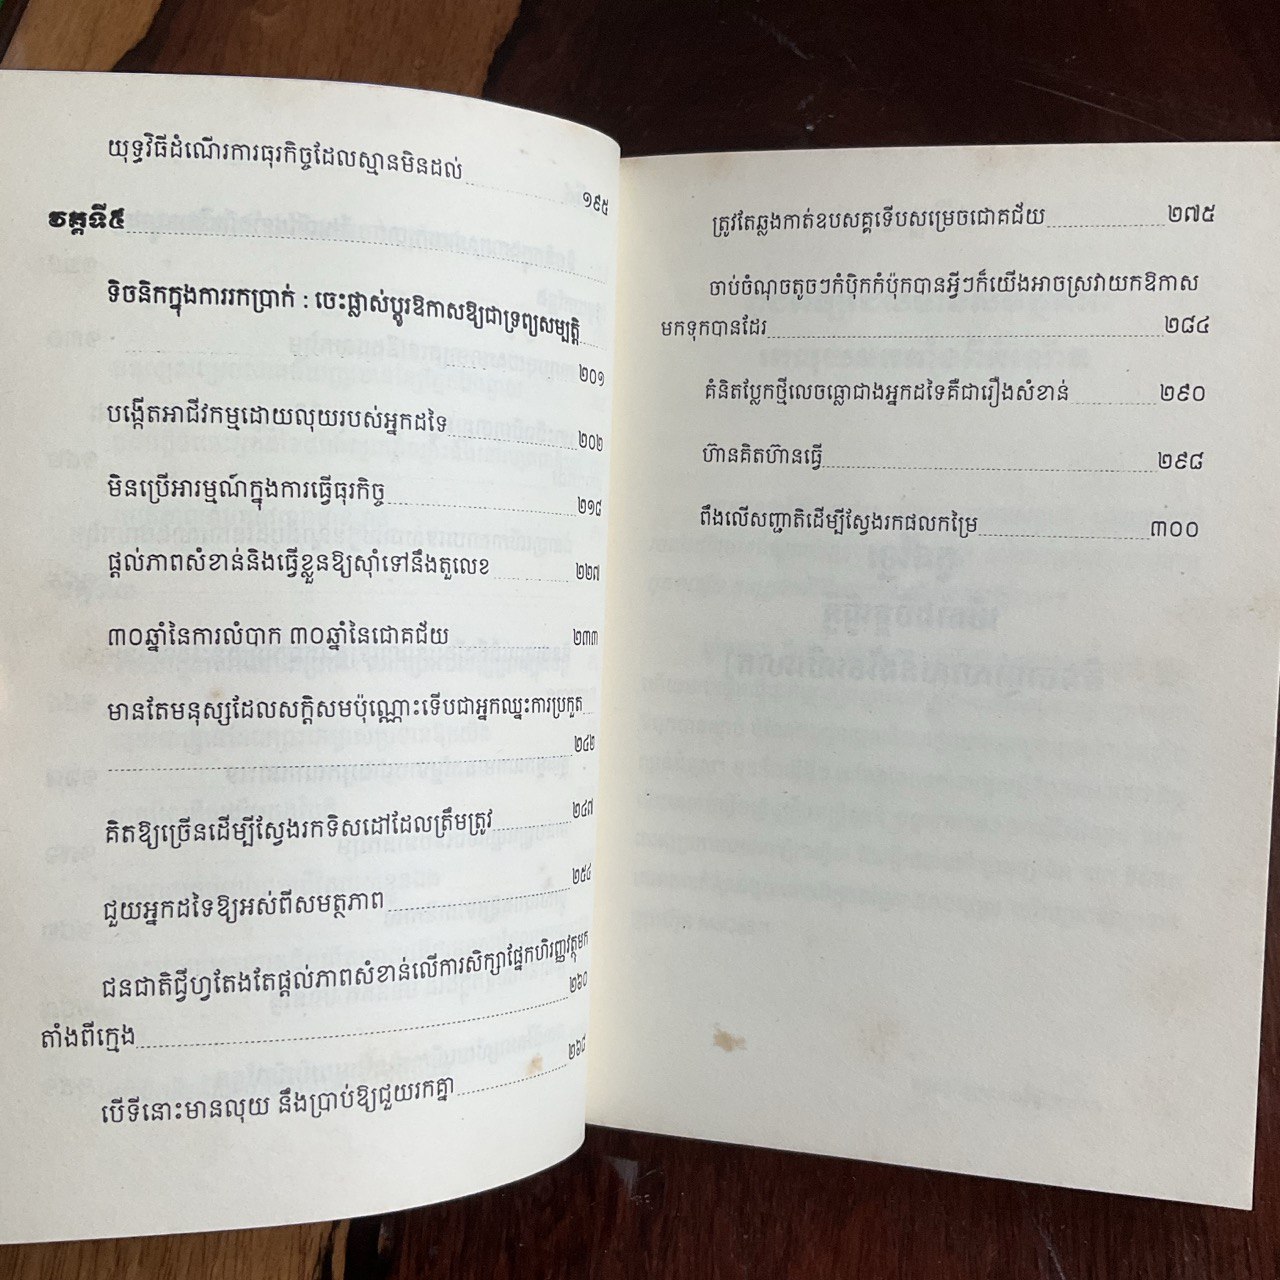 យុទ្ធវិធីដំណើរការធុរកិច្ចដែលស្មានមិនដល់ ១៩៥
វគ្គទី៥
ទិចនិកក្នុងការរកប្រាក់ : ចេះផ្លាស់ប្តូរឱកាសឱ្យជាទ្រព្យសម្បត្តិ
២០១
បង្កើតអាជីវកម្មដោយលុយរបស់អ្នកដទៃ ២០២
មិនប្រើអារម្មណ៍ក្នុងការធ្វើធុរកិច្ច ២១៨
ផ្តល់ភាពសំខាន់និងធ្វើខ្លួនឱ្យស៊ាំទៅនឹងតួលេខ ២២៧
៣០ឆ្នាំនៃការលំបាក ៣០ឆ្នាំនៃជោគជ័យ ២៣៣
មានតែមនុស្សដែលសក្តិសមប៉ុណ្ណោះទើបជាអ្នកឈ្នះការប្រកួត
២៤២
គិតឱ្យច្រើនដើម្បីស្វែងរកទិសដៅដែលត្រឹមត្រូវ ២៤៧
ជួយអ្នកដទៃឱ្យអស់ពីសមត្ថភាព ២៥៤
ជនជាតិជ្វីហ្វតែងតែផ្តល់ភាពសំខាន់លើការសិក្សាផ្នែកហិរញ្ញវត្ថុមក
តាំងពីក្មេង ២៦០
បើទីនោះមានលុយ នឹងប្រាប់ឱ្យជួយរកគ្នា ២៦៨
ត្រូវតែឆ្លងកាត់ឧបសគ្គទើបសម្រេចជោគជ័យ ២៧៥
ចាប់ចំណុចតូចៗកំប៉ិកកំប៉ុកបានអ្វីៗក៏យើងអាចស្រវាយកឱកាស
មកទុកបានដែរ ២៨៤
គំនិតប្លែកថ្មីលេចធ្លោជាងអ្នកដទៃគឺជារឿងសំខាន់ ២៩០
ហ៊ានគិតហ៊ានធ្វើ ២៩៨
ពឹងលើសញ្ជាតិដើម្បីស្វែងរកផលកម្រៃ ៣០០